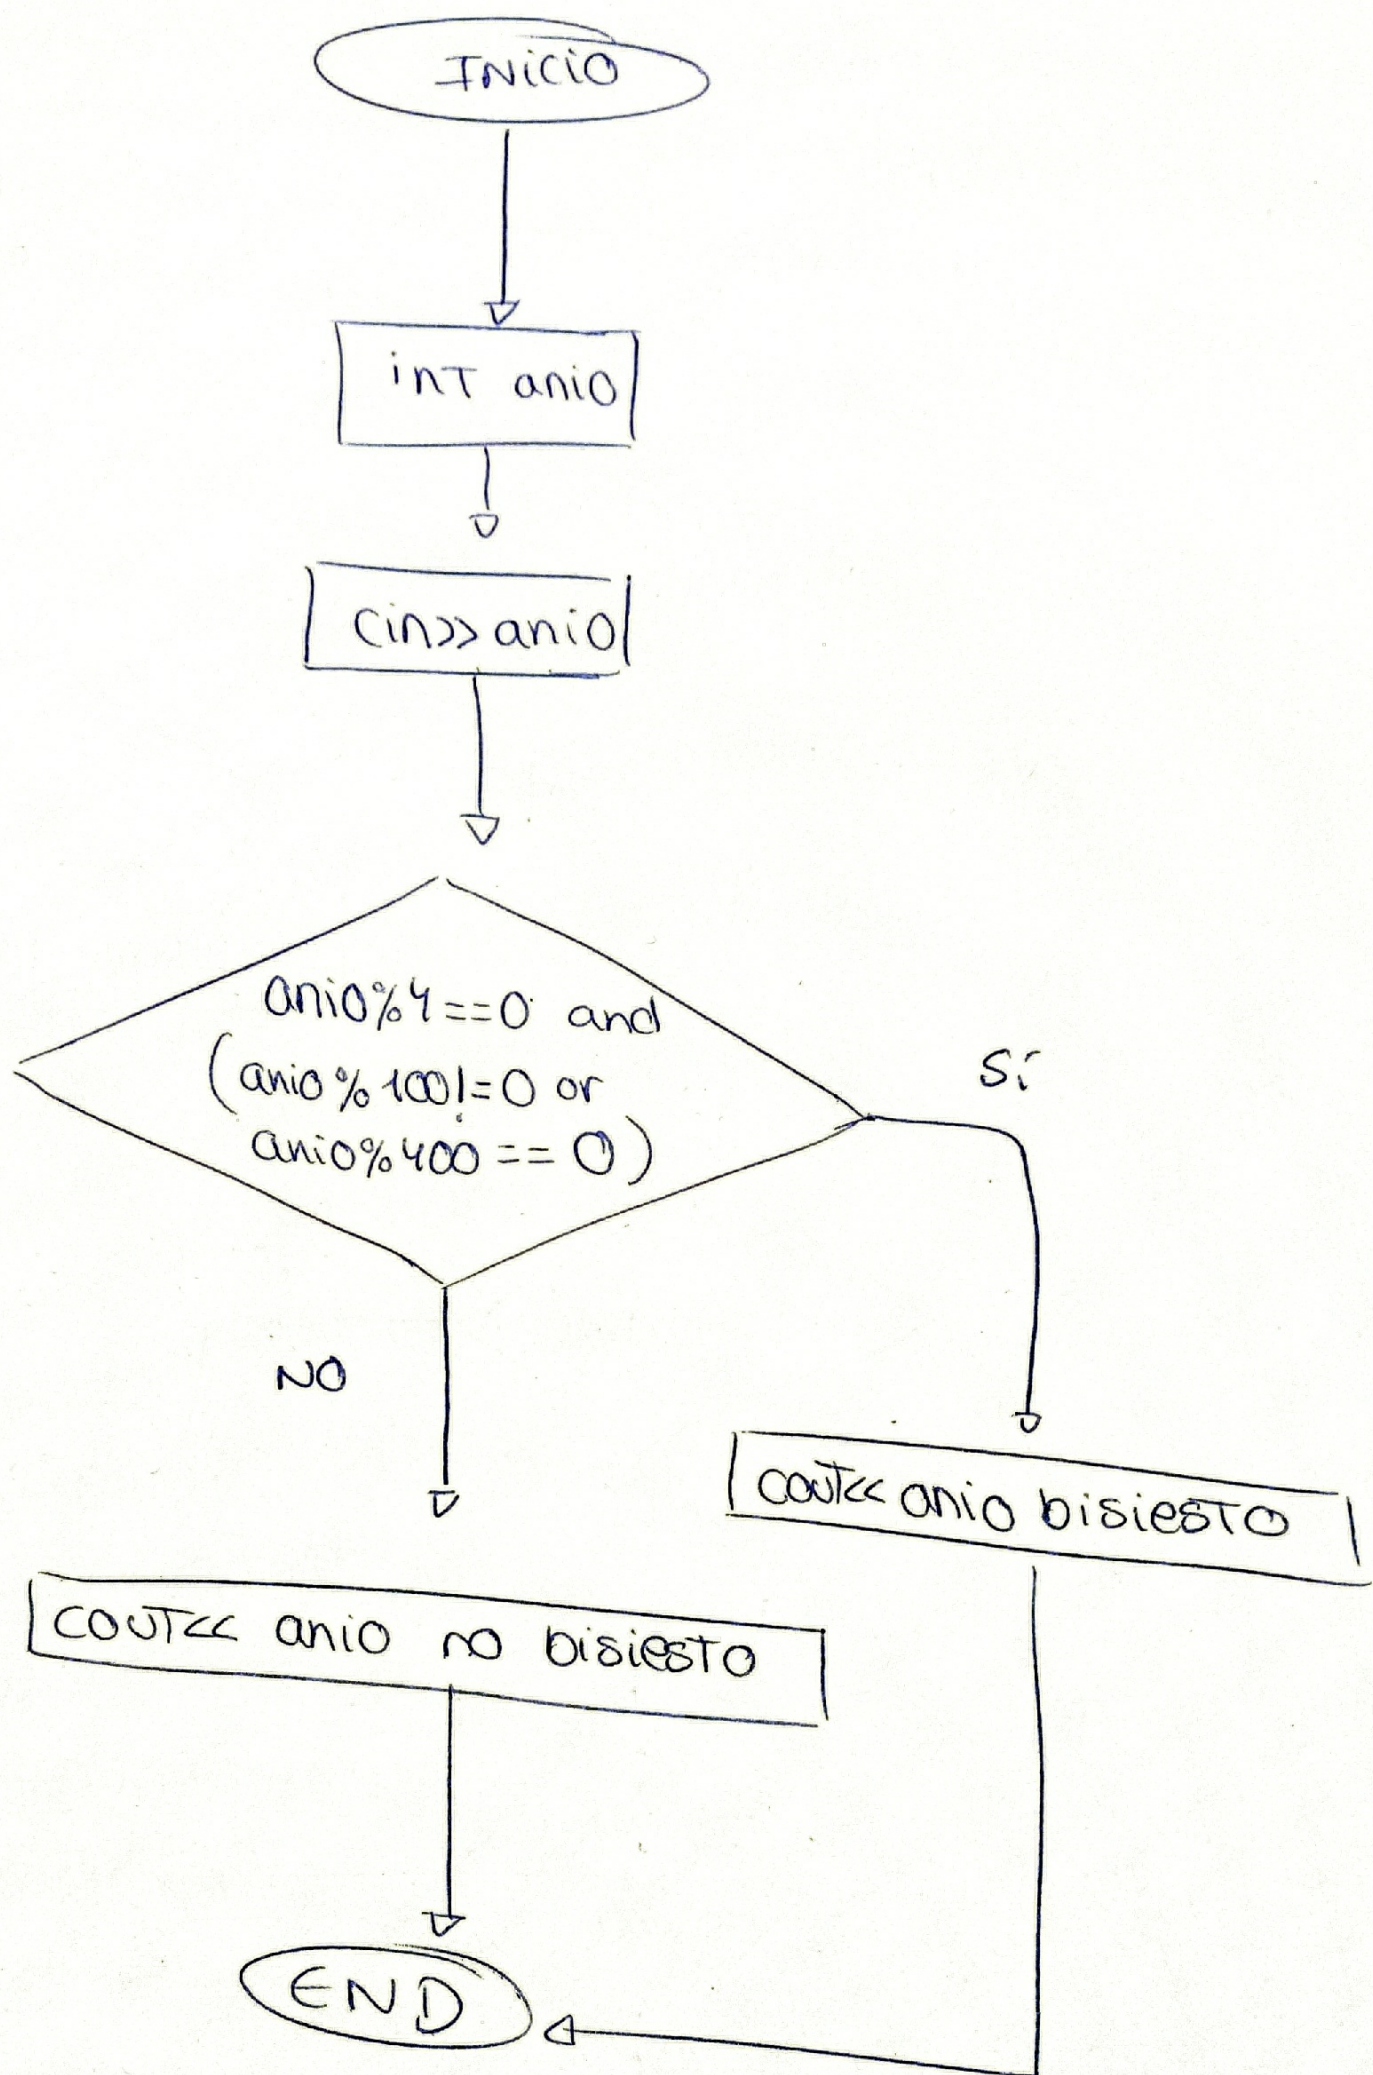 INICIO
int anio
cin>> anio
anio%4==0 and
(anio%100!=0 or
anio%400 == 0)
Sí
NO
cout<< anio bisiesto
cout<< anio no bisiesto
END